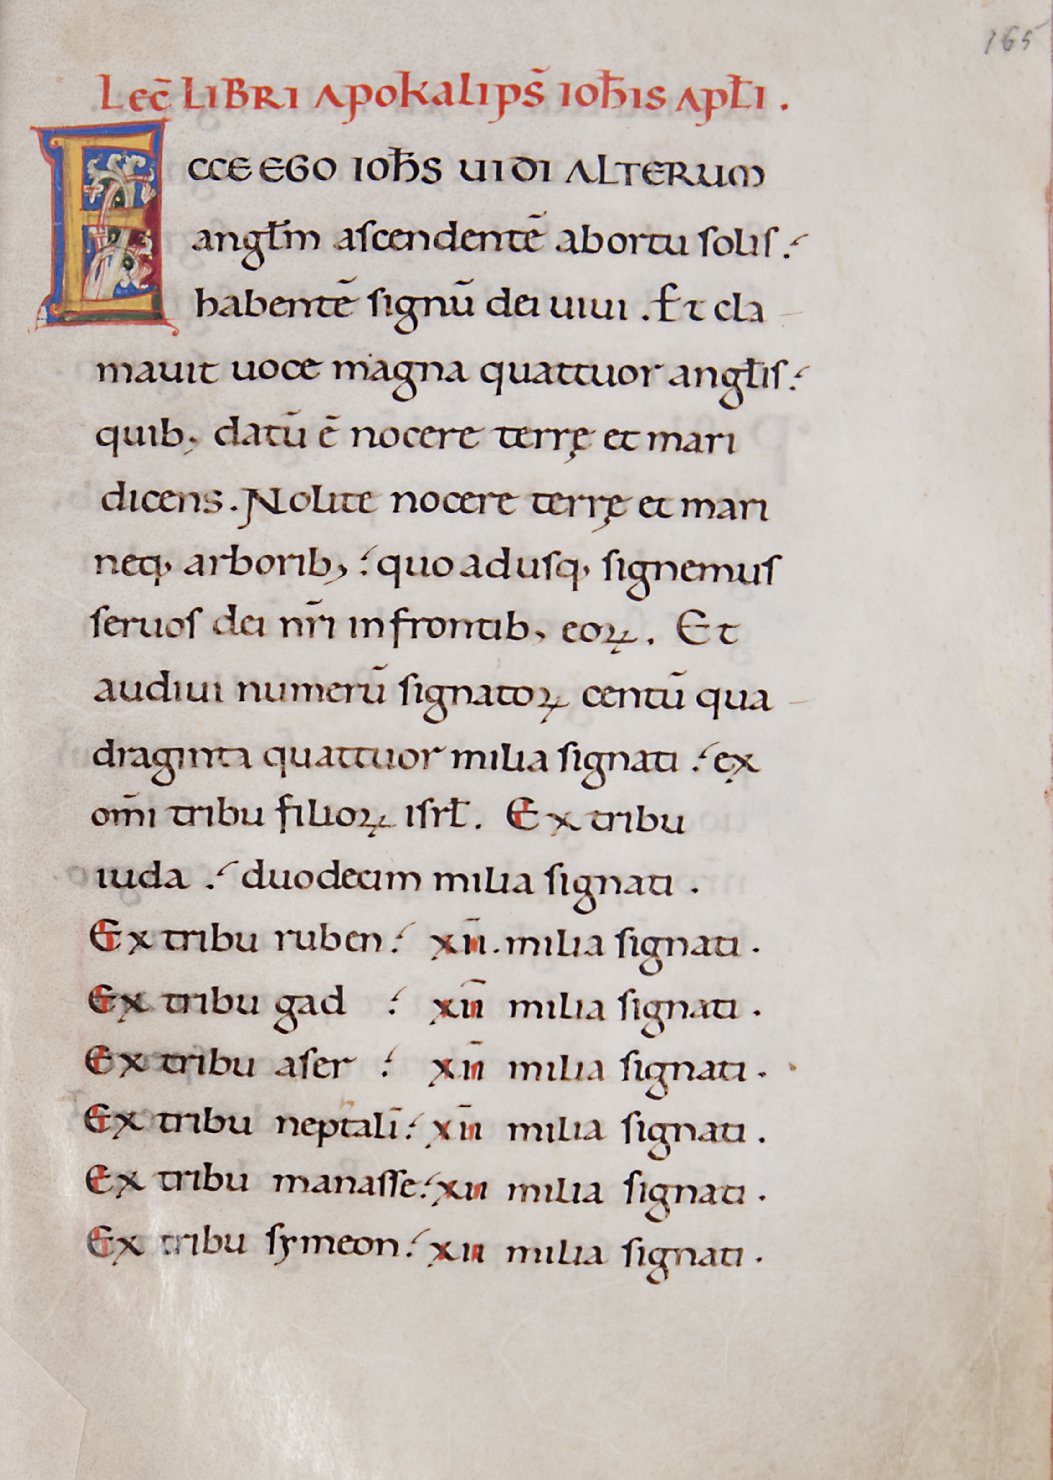 165
Lec̄ LIBRI Apokalips̄ Ioħis Apłi .
ECCE EGO IOħS UIDI ALTERUM
angłm ascendentē abortu solis :
habentē signū dei uiui . Et cla
mauit uoce magna quattuor angłis :
quib; datū ē nocere terrę et mari
dicens . Nolite nocere terrę et mari
neq; arborib; : quo adusq; signemus
seruos dei nr̄i infrontib; eoꝝ . Et
audiui numerū signatoꝝ centū qua
draginta quattuor milia signati : ex
om̄i tribu filioꝝ isrł . Ex tribu
iuda : duodecim milia signati .
Ex tribu ruben : xiī . milia signati .
Ex tribu gad : xiī milia signati .
Ex tribu aser : xiī milia signati .
Ex tribu neptalī : xiī milia signati .
Ex tribu manasse : xii milia signati .
Ex tribu symeon : xii milia signati .